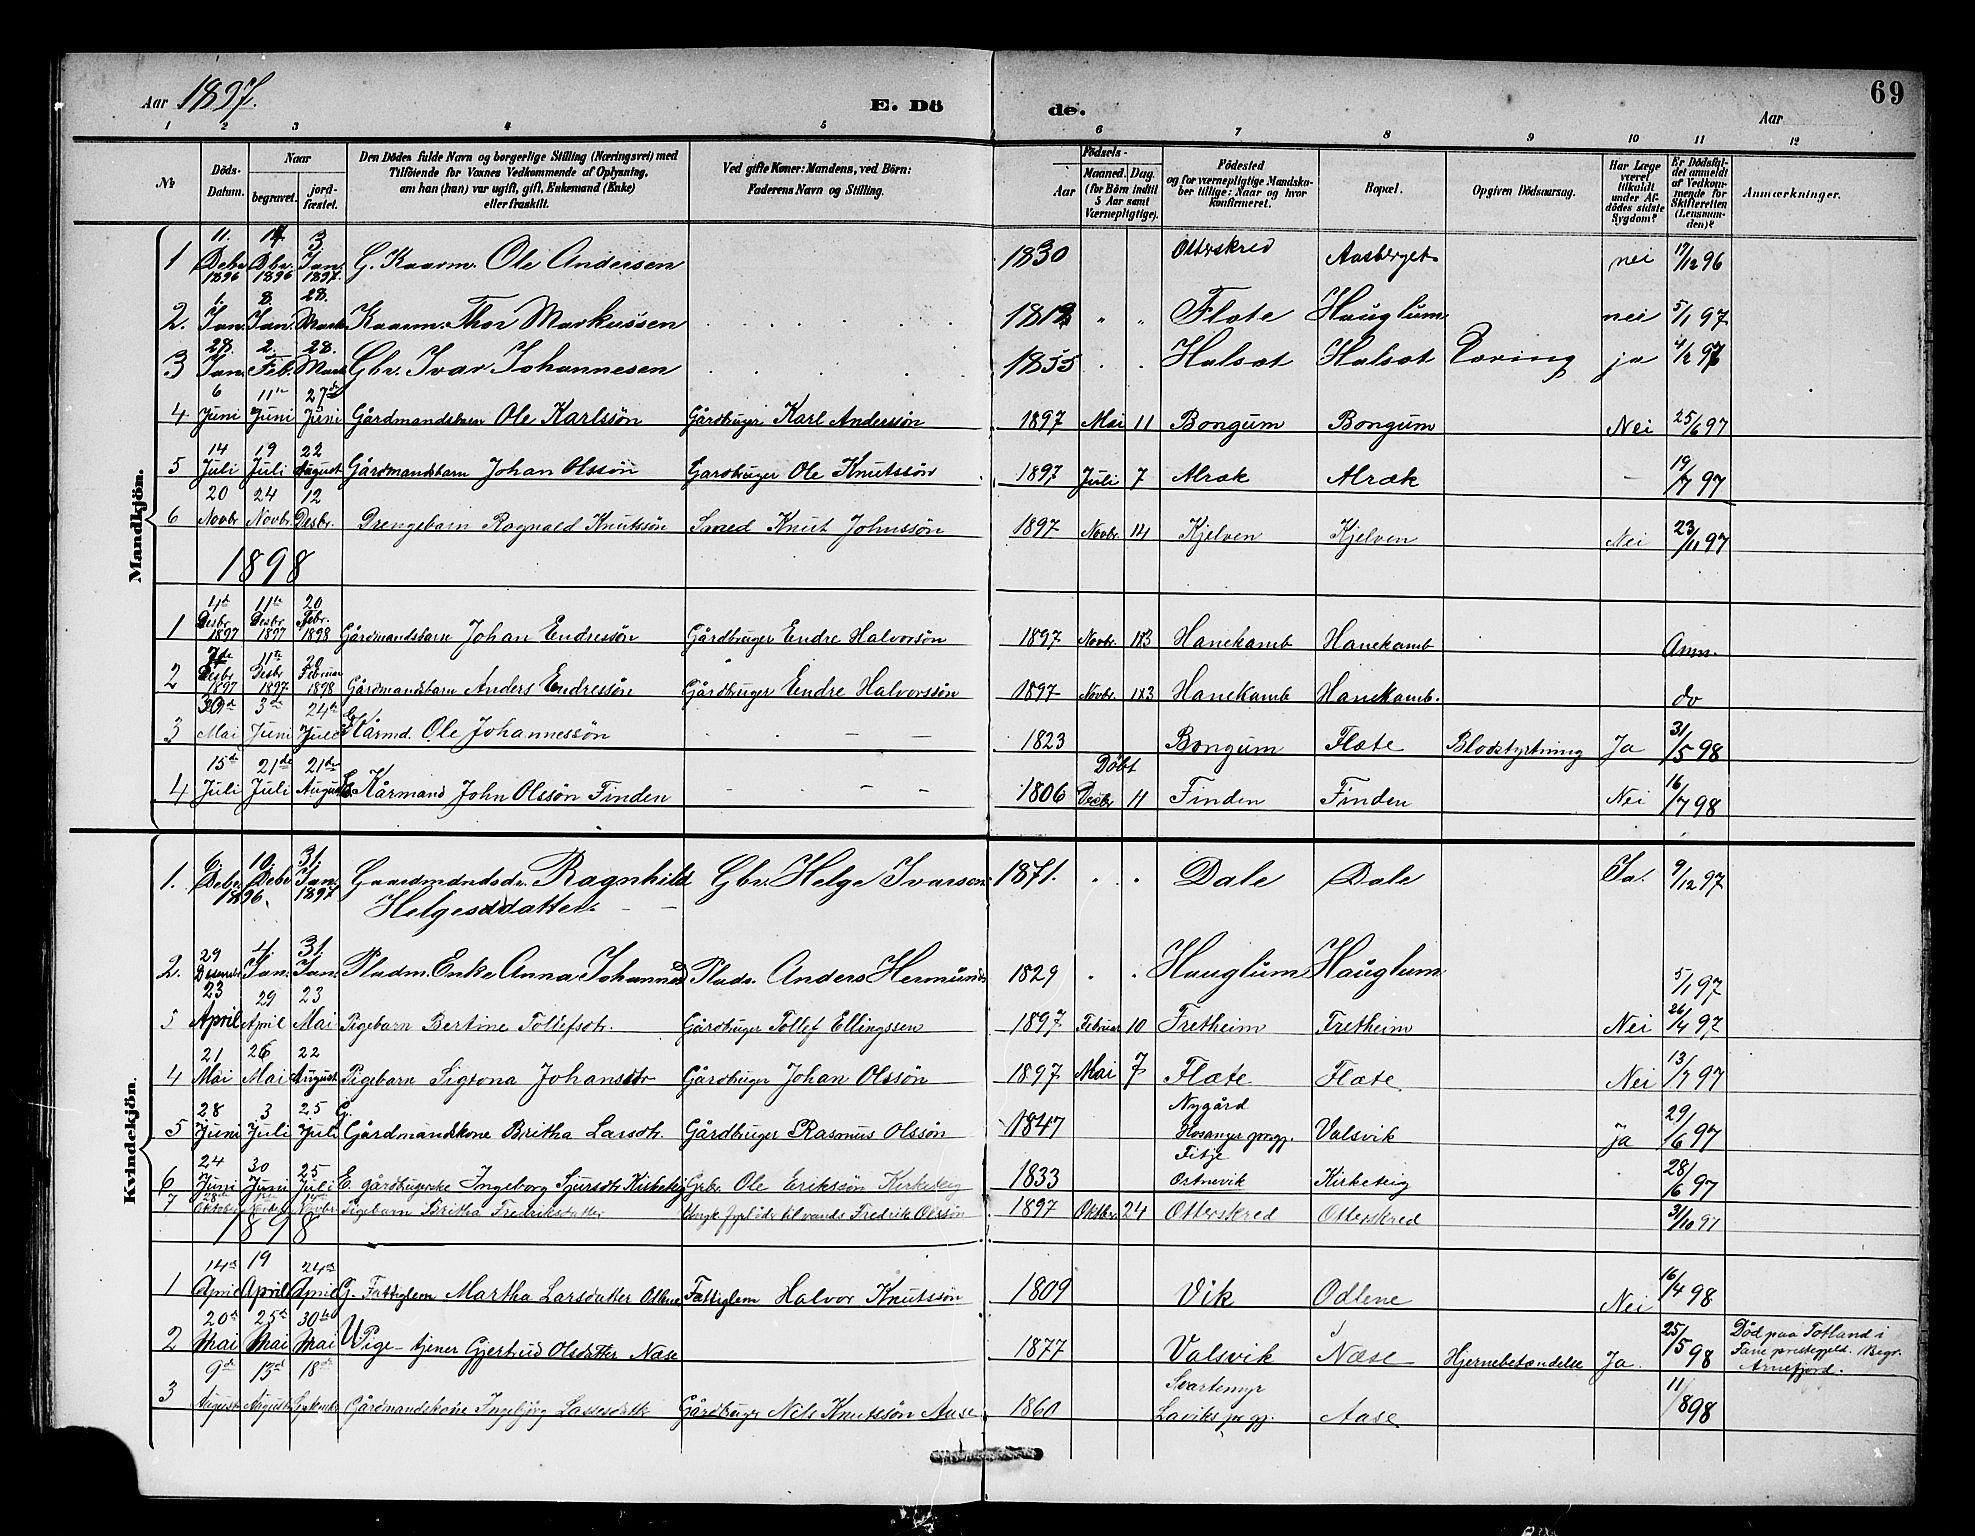 69
Aar 1897. E. Dö de. Aar
1 2 3 4 5 6 7 8 9 10 11 12
№ Döds-Datum. Naar begravet. jordfæstet. Den Dödes fulde Navn og borgerlige Stilling (Næringsvei) med Tilföiende for Voxnes Vedkommende af Oplysning, om han (hun) var ugift, gift, Enkemand (Enke) eller fraskilt. Ved gifte Koner: Mandens, ved Börn: Faderens Navn og Stilling. Födsels- Aar Maaned. Dag. (for Börn indtil 5 Aar samt Værnepligtige). Födested og for værnepligtige Mandskaber tillige: Naar og hvor konfirmeret. Bopæl. Opgiven Dödsaarsag. Har Læge været tilkaldt under Afdödes sidste Sygdom? Er Dödsfaldet anmeldt af Vedkommende for Skifteretten (Lensmanden)? Anmærkninger.
Mandkjön.
1 11. Debr. 1896 14 Dbr. 1896 3 Jan. 1897. G. Kaarm. Ole Andersen 1830 Otterskred Aasberget nei 17/12 96
2. 1. Jan. 8. Jan. 28. Mark Kaarm. Thor Markussen 1812 " " Flate Hauglum nei 5/1 97
3 28. Jan. 2. Feb. 28. Mark Gbr. Ivar Johannesen 1855 Halsat Halsat Tæring ja 4/2 97
4 6 Juni 11te Juni 27de Juni Gårdmandsbarn Ole Karlssön Gårdbruger Karl Anderssön 1897 Mai 11 Bongum Bongum Nei 25/6 97
5 14 Juli 19 Juli 22 August Gårdmandsbarn Johan Olssön Gardbruger Ole Knutssön 1897 Juli 7 Alræk Alræk — 19/7 97
6 20 Novbr 24 Novbr 12 Desbr. Drengebarn Ragnald Knutssön Smed Knut Johnssön 1897 Novbr. 14 Kjelven Kjelven Nei 23/11 97
1898
1 4de Desbr 1897 11te Desbr 1897 20 Febr. 1898 Gårdmandsbarn Johan Endressön Gårdbruger Endre Halvorsön 1897 Novbr. 183 Hanekamb Hanekamb Anm.
2 7de Desbr 1897 11te Desbr 1897 20 Februar 1898 Gårdmandsbarn Anders Endressön Gårdbruger Endre Halvorssön 1897 Novbr 183 Hanekamb Hanekamb. do
3 30d Mai 3de Juni 24de Juli G. Kårmd. Ole Johannessön — — 1823 Bongum Flæte Blodstyrtning Ja 31/5 98
4 15de Juli 21de Juli 21de August E. Kårmand John Olssön Finden — — — 1806 Döbt Desbr 11 Finden Finden Nei 16/7 98
Kvindekjön.
1. 6. Debr 1896. 10. Debr 31. Jan. 1897 Gaardmandsdr. Ragnhild Gbr. Helge Ivarsen 1871. " " Dale Dale Ja. 9/12 97
Helgesdatter — —
2. 29 Desember 4 Jan. 31. Jan. Pladm. Enke Anna Johannesd Plads. Anders Hermunds 1829 " " Hauglum Hauglum 5/1 97
3 23 April 29 April 23 Mai Pigebarn Bertine Tollefsdtr. Gårdbruger Tollef Ellingssen 1897 Februar 10 Fretheim Fretheim Nei 26/4 97
4 21 Mai 26 Mai 22 August Pigebarn Sigtona Johansdtr Gårdbruger Johan Olssön 1897 Mai 7 Flæte Flæte. Nei 13/7 97
5 28 Juni 3 Juli 25 Juli G. Gårdmandskone Britha Larsdtr. Gårdbruger Rasmus Olssön 1847 Nygård Hosanger prgj. Valsvik ja 29/6 97
6 24 Juni 30 Juni 25 Juli E gårdbrugerske Ingeborg Sjursdtr Kirketeig Grbr. Ole Erikssön Kirketeig 1833 Fitje Ostnevik Kirketeig 28/6 97
7 28de Oktober 14de Novbr Pigebarn Britha Fredriksdatter Fredrik Olssön 1897 Oktbr. 24 Otterskred Otterskred 31/10 97
1898
1 14de April 19 April 24de April G. Fattiglem Martha Larsdatter Fattiglem Halvor Knutssön 1809 Vik Odlene Nei 16/4 98
2 20d Mai 25de Mai 30te Mai U Pige - tjener Gjertrud Olsdatter Næse 1877 Valsvik Næse Hjernebetændelse Ja 25/5 98 Död paa Totland i Fane prestegjeld. Begr. Arnefjord.
3 9de August 13d August 18de Septembr Gårdmandskone Ingebjörg Lassesdatr Gårdbruger Nils Knutssön Aase 1860 Svartemyr Laviks prgj. Aase 11/8 98